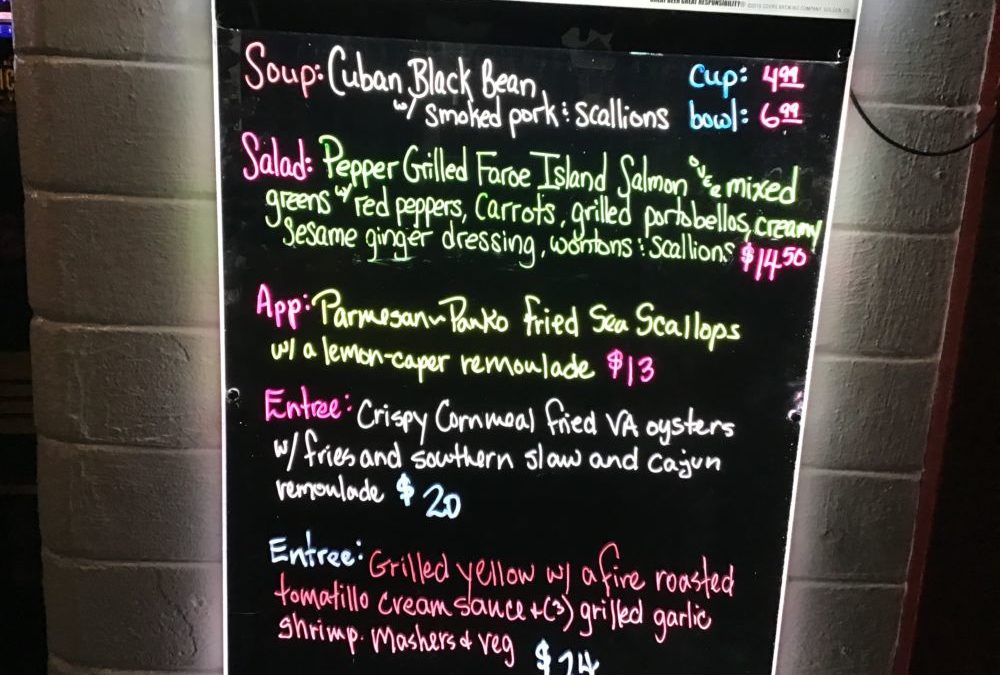 GREAT BEER GREAT RESPONSIBILITY® ©2015 COORS BREWING COMPANY, GOLDEN, CO
Soup: Cuban Black Bean cup: 4.99
w/ smoked pork & scallions bowl: 6.99
Salad: Pepper Grilled Faroe Island Salmon over mixed
greens w/ red peppers, Carrots, grilled portobellos, creamy
sesame ginger dressing, wontons & scallions $14.50
App: Parmesan~Panko fried Sea Scallops
w/ a lemon-caper remoulade $13
Entree: Crispy Cornmeal fried VA oysters
w/ fries and southern slaw and cajun
remoulade $20
Entree: Grilled yellow w/ a fire roasted
tomatillo cream sauce + (3) grilled garlic
shrimp. Mashers & veg $24